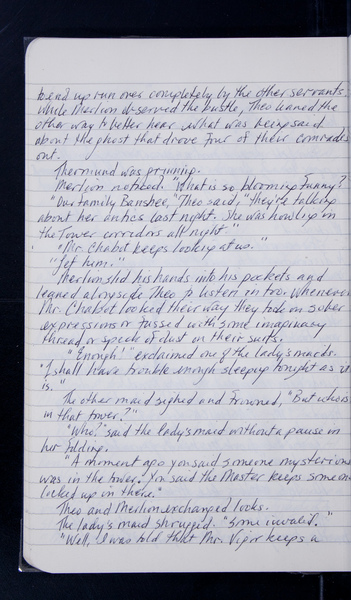 to end up run over completely by the other servants;
while Merlion observed the bustle, Theo leaned the
other way to better hear what was being said
about the ghost that drove four of their comrades
out.
Thermund was grinning.
Merlion noticed. "What is so blooming funny?
"Our family Banshee," Theo said, "they're talking
about her antics last night. She was howling in
the Tower corridors all night."
"Mr. Chabot keeps looking at us."
"Let him."
Merlion slid his hands into his pockets and
leaned alongside Theo to listen in too. Whenever
Mr. Chabot looked their way they took on sober
expressions or fussed with some imaginary
thread or speck of dust on their suits.
"Enough!" exclaimed one of the lady's maids.
"I shall have trouble enough sleeping tonight as it
is."
The other maid sighed and frowned, "But who is
in that tower?"
"Who?" said the lady's maid without a pause in
her folding.
"A moment ago you said someone mysterious
was in the tower. You said the Master keeps someone
locked up in there."
Theo and Merlion exchanged looks.
The lady's maid shrugged. "Some invalid."
"Well, I was told that Mr. Vigor keeps a